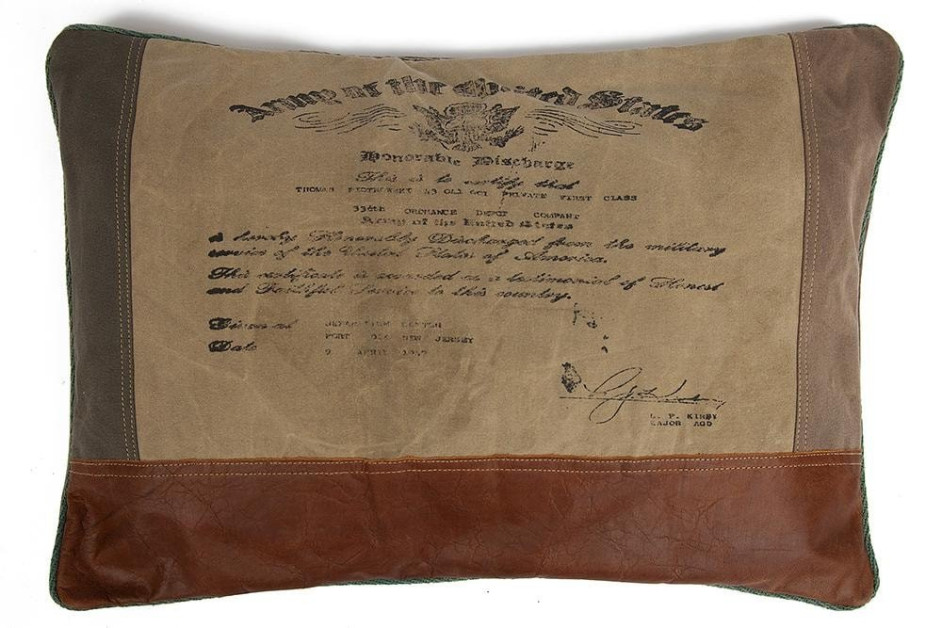 Army of the United States
Honorable Discharge
This is to certify that
THOMAS PRIVATE FIRST CLASS
336th ORDNANCE DEPOT COMPANY
Army of the United States
is hereby Honorably Discharged from the military
service of the United States of America.
This certificate is awarded as a testimonial of Honest
and Faithful Service to this country.
Given at SEPARATION CENTER
FORT DIX NEW JERSEY
Date 2 APRIL
L. F. KIRBY
MAJOR AGD